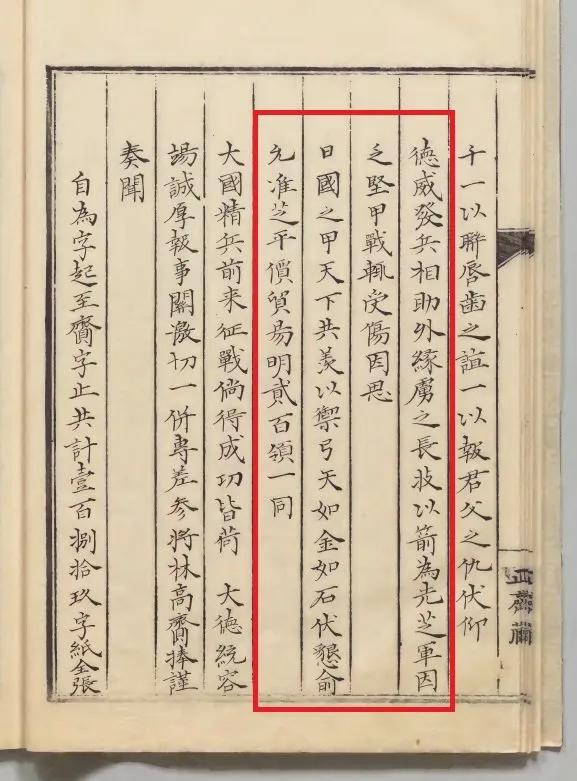 千一以聯唇齒之誼一以報君父之仇伏仰
德威發兵相助外緣虜之長技以箭為先芝軍因
之堅甲戰輒受傷因思
日國之甲天下共羨以禦弓矢如金如石伏懇俞
允准芝平價貿易明貳百領一同
大國精兵前来征戰倘得成功皆荷 大德統容
場誠厚報事關激切一併專差参將林高齎捧謹
奏聞
自為字起至齎字止共計壹百捌拾玖字紙全張